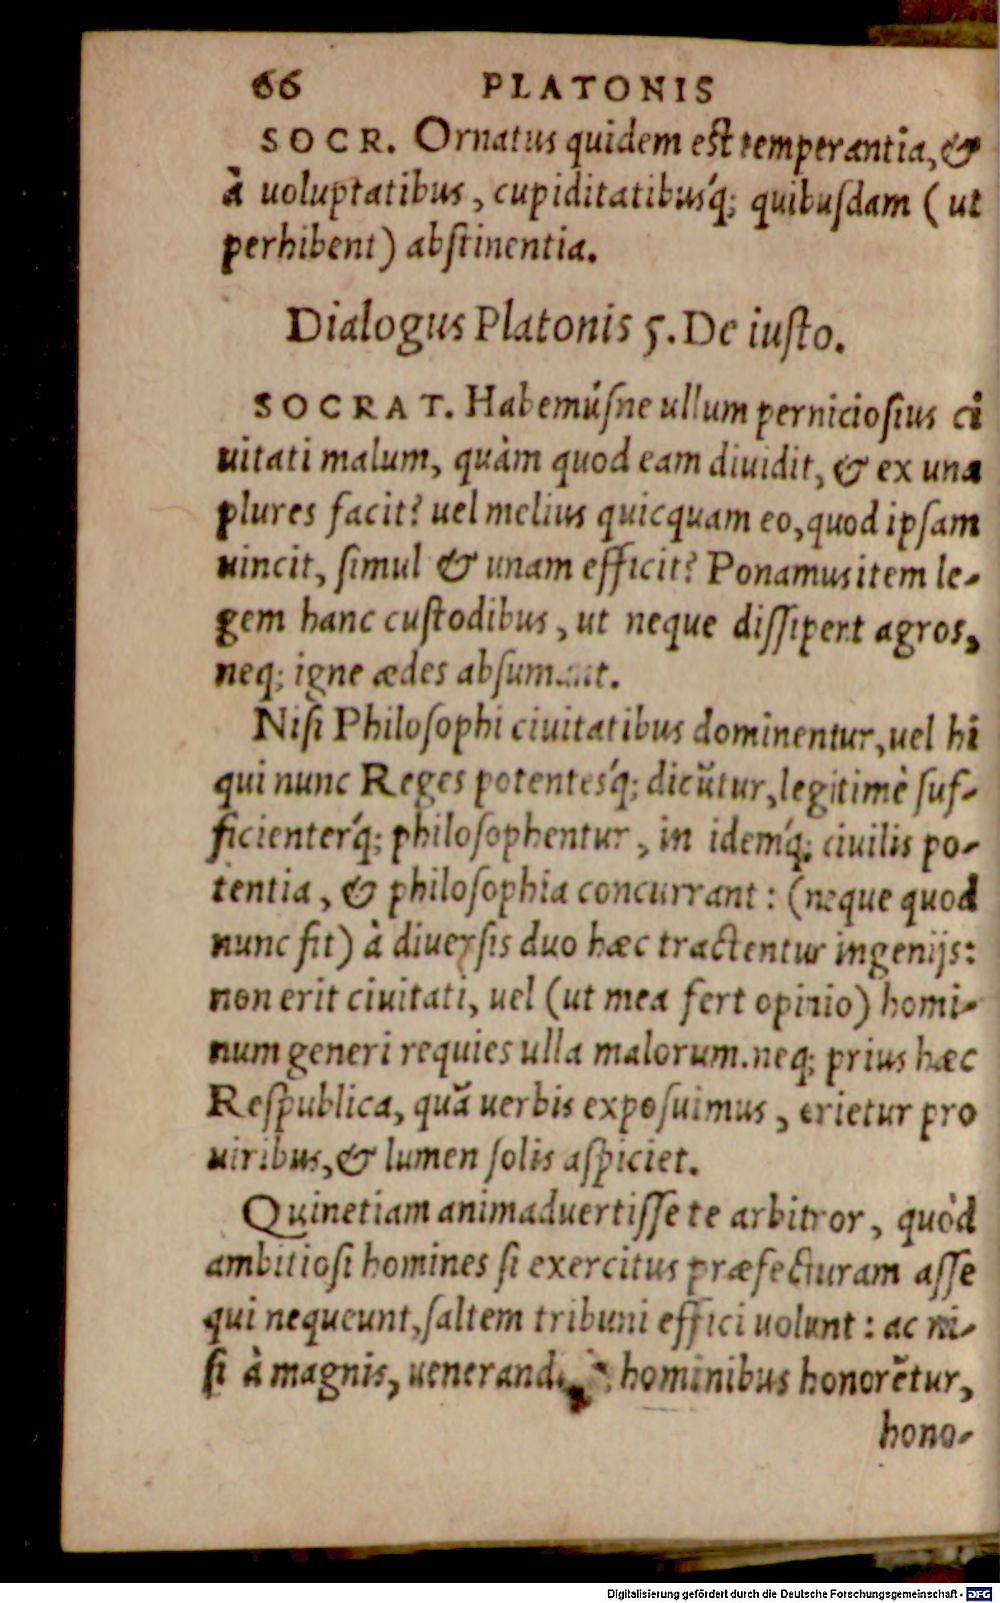 66 PLATONIS
SOCR. Ornatus quidem est temperantia, &
à uoluptatibus, cupiditatibusq́; quibuſdam (ut
perhibent) abſtinentia.
Dialogus Platonis 5. De iuſto.
SOCRAT. Habemúſne ullum pernicioſius ci
uitati malum, quàm quod eam diuidit, & ex una
plures facit? uel melius quicquam eo, quod ipſam
uincit, ſimul & unam efficit? Ponamus item le-
gem hanc cuſtodibus, ut neque diſſipent agros,
neq; igne ædes abſumant.
Niſi Philoſophi ciuitatibus dominentur, uel hi
qui nunc Reges potentesq́; dicũtur, legitimè ſuf-
ficienterq́; philoſophentur, in idemq́; ciuilis po-
tentia, & philoſophia concurrant: (neque quod
nunc fit) à diuerſis duo hæc tractentur ingenijs:
non erit ciuitati, uel (ut mea fert opinio) homi-
num generi requies ulla malorum. neq; prius hæc
Reſpublica, quã uerbis expoſuimus, orietur pro
uiribus, & lumen ſolis aſpiciet.
Quinetiam animaduertiſſe te arbitror, quòd
ambitioſi homines ſi exercitus præfecturam aſſe
qui nequeunt, ſaltem tribuni effici uolunt: ac ni-
ſi à magnis, hominibus honorẽtur,
hono-
Digitalisierung gefördert durch die Deutsche Forschungsgemeinschaft - DFG